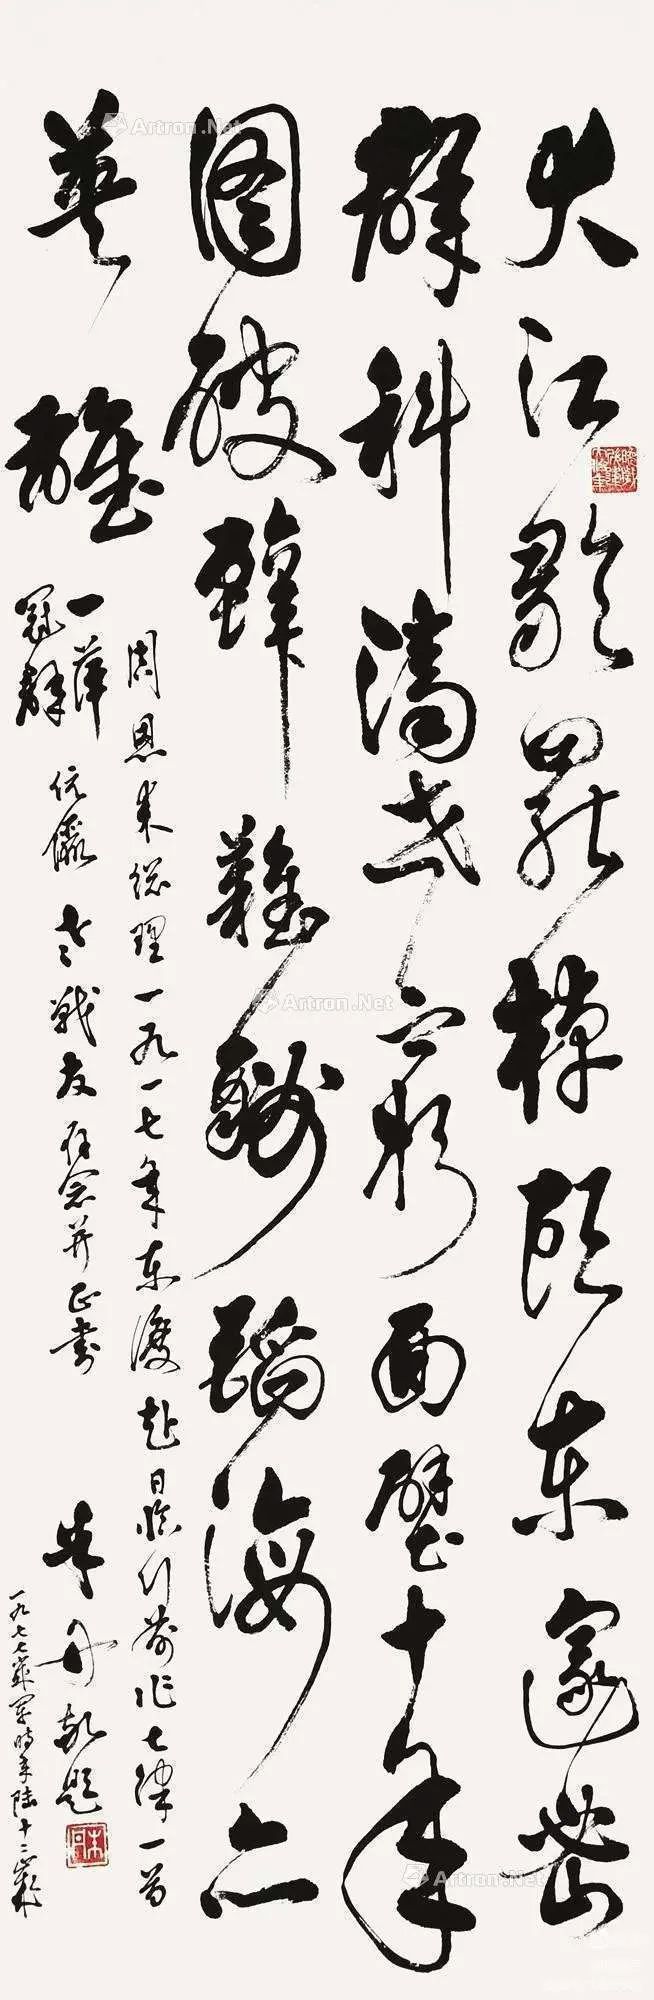 大江歌罷棹頭东邃密
群科濟世窮面壁十年
图破壁難酬蹈海亦
英雄
周恩来总理一九一七年东渡赴日临行前作七律一首
一萍
冠群
伉儷老战友存念并正书
朱丹敬题
一九七七 时年陆十二
Artron.Net
Artron.Net
Artron.Net
Artron.Net